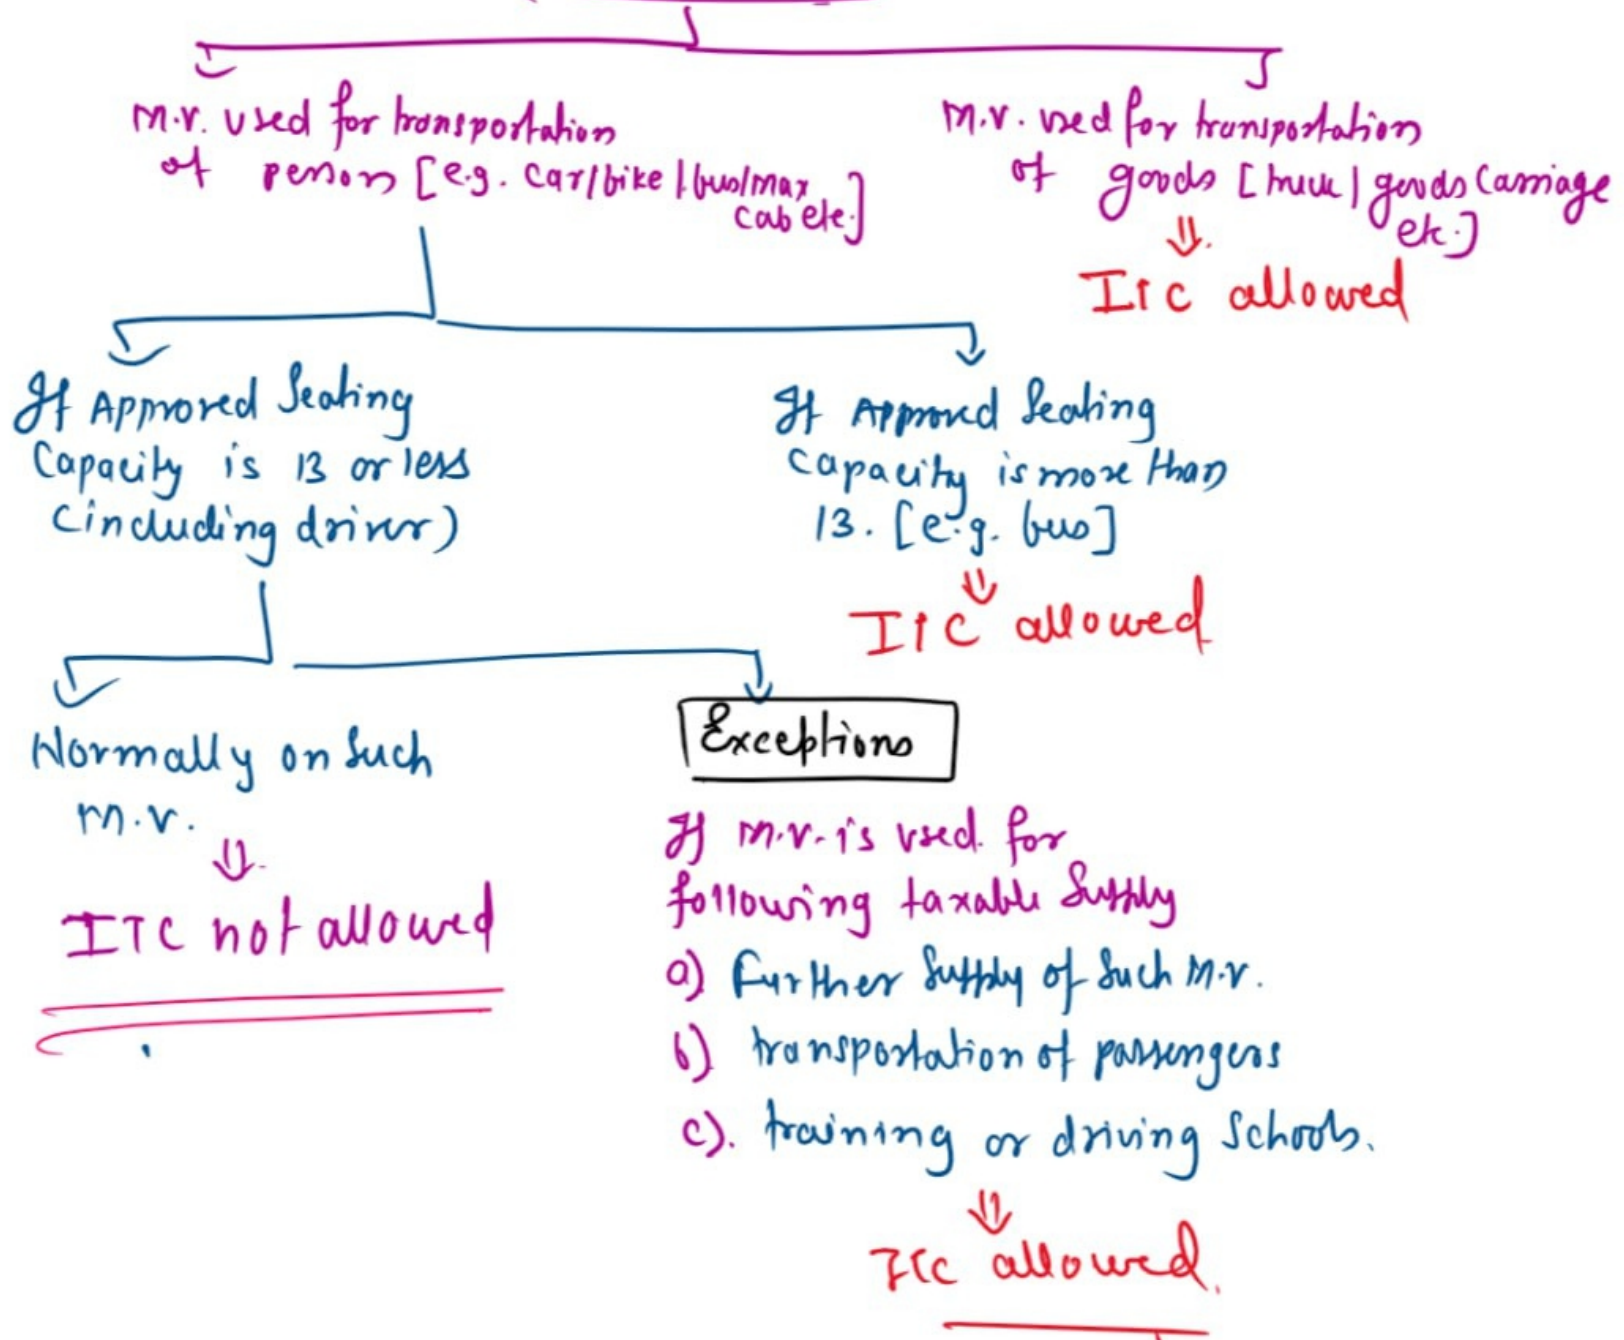 M.V. used for transportation
of person [e.g. car/bike/bus/max
cab etc.]
M.V. used for transportation
of goods [truck/goods carriage
etc.]
⇓
ITC allowed
If Approved Seating
Capacity is 13 or less
(including driver)
If Approved Seating
capacity is more than
13. [e.g. bus]
⇓
ITC allowed
Normally on such
M.V.
⇓
ITC not allowed
Exceptions
If M.V. is used for
following taxable supply
a) Further supply of such M.V.
b) transportation of passengers
c). training or driving schools.
⇓
ITC allowed.